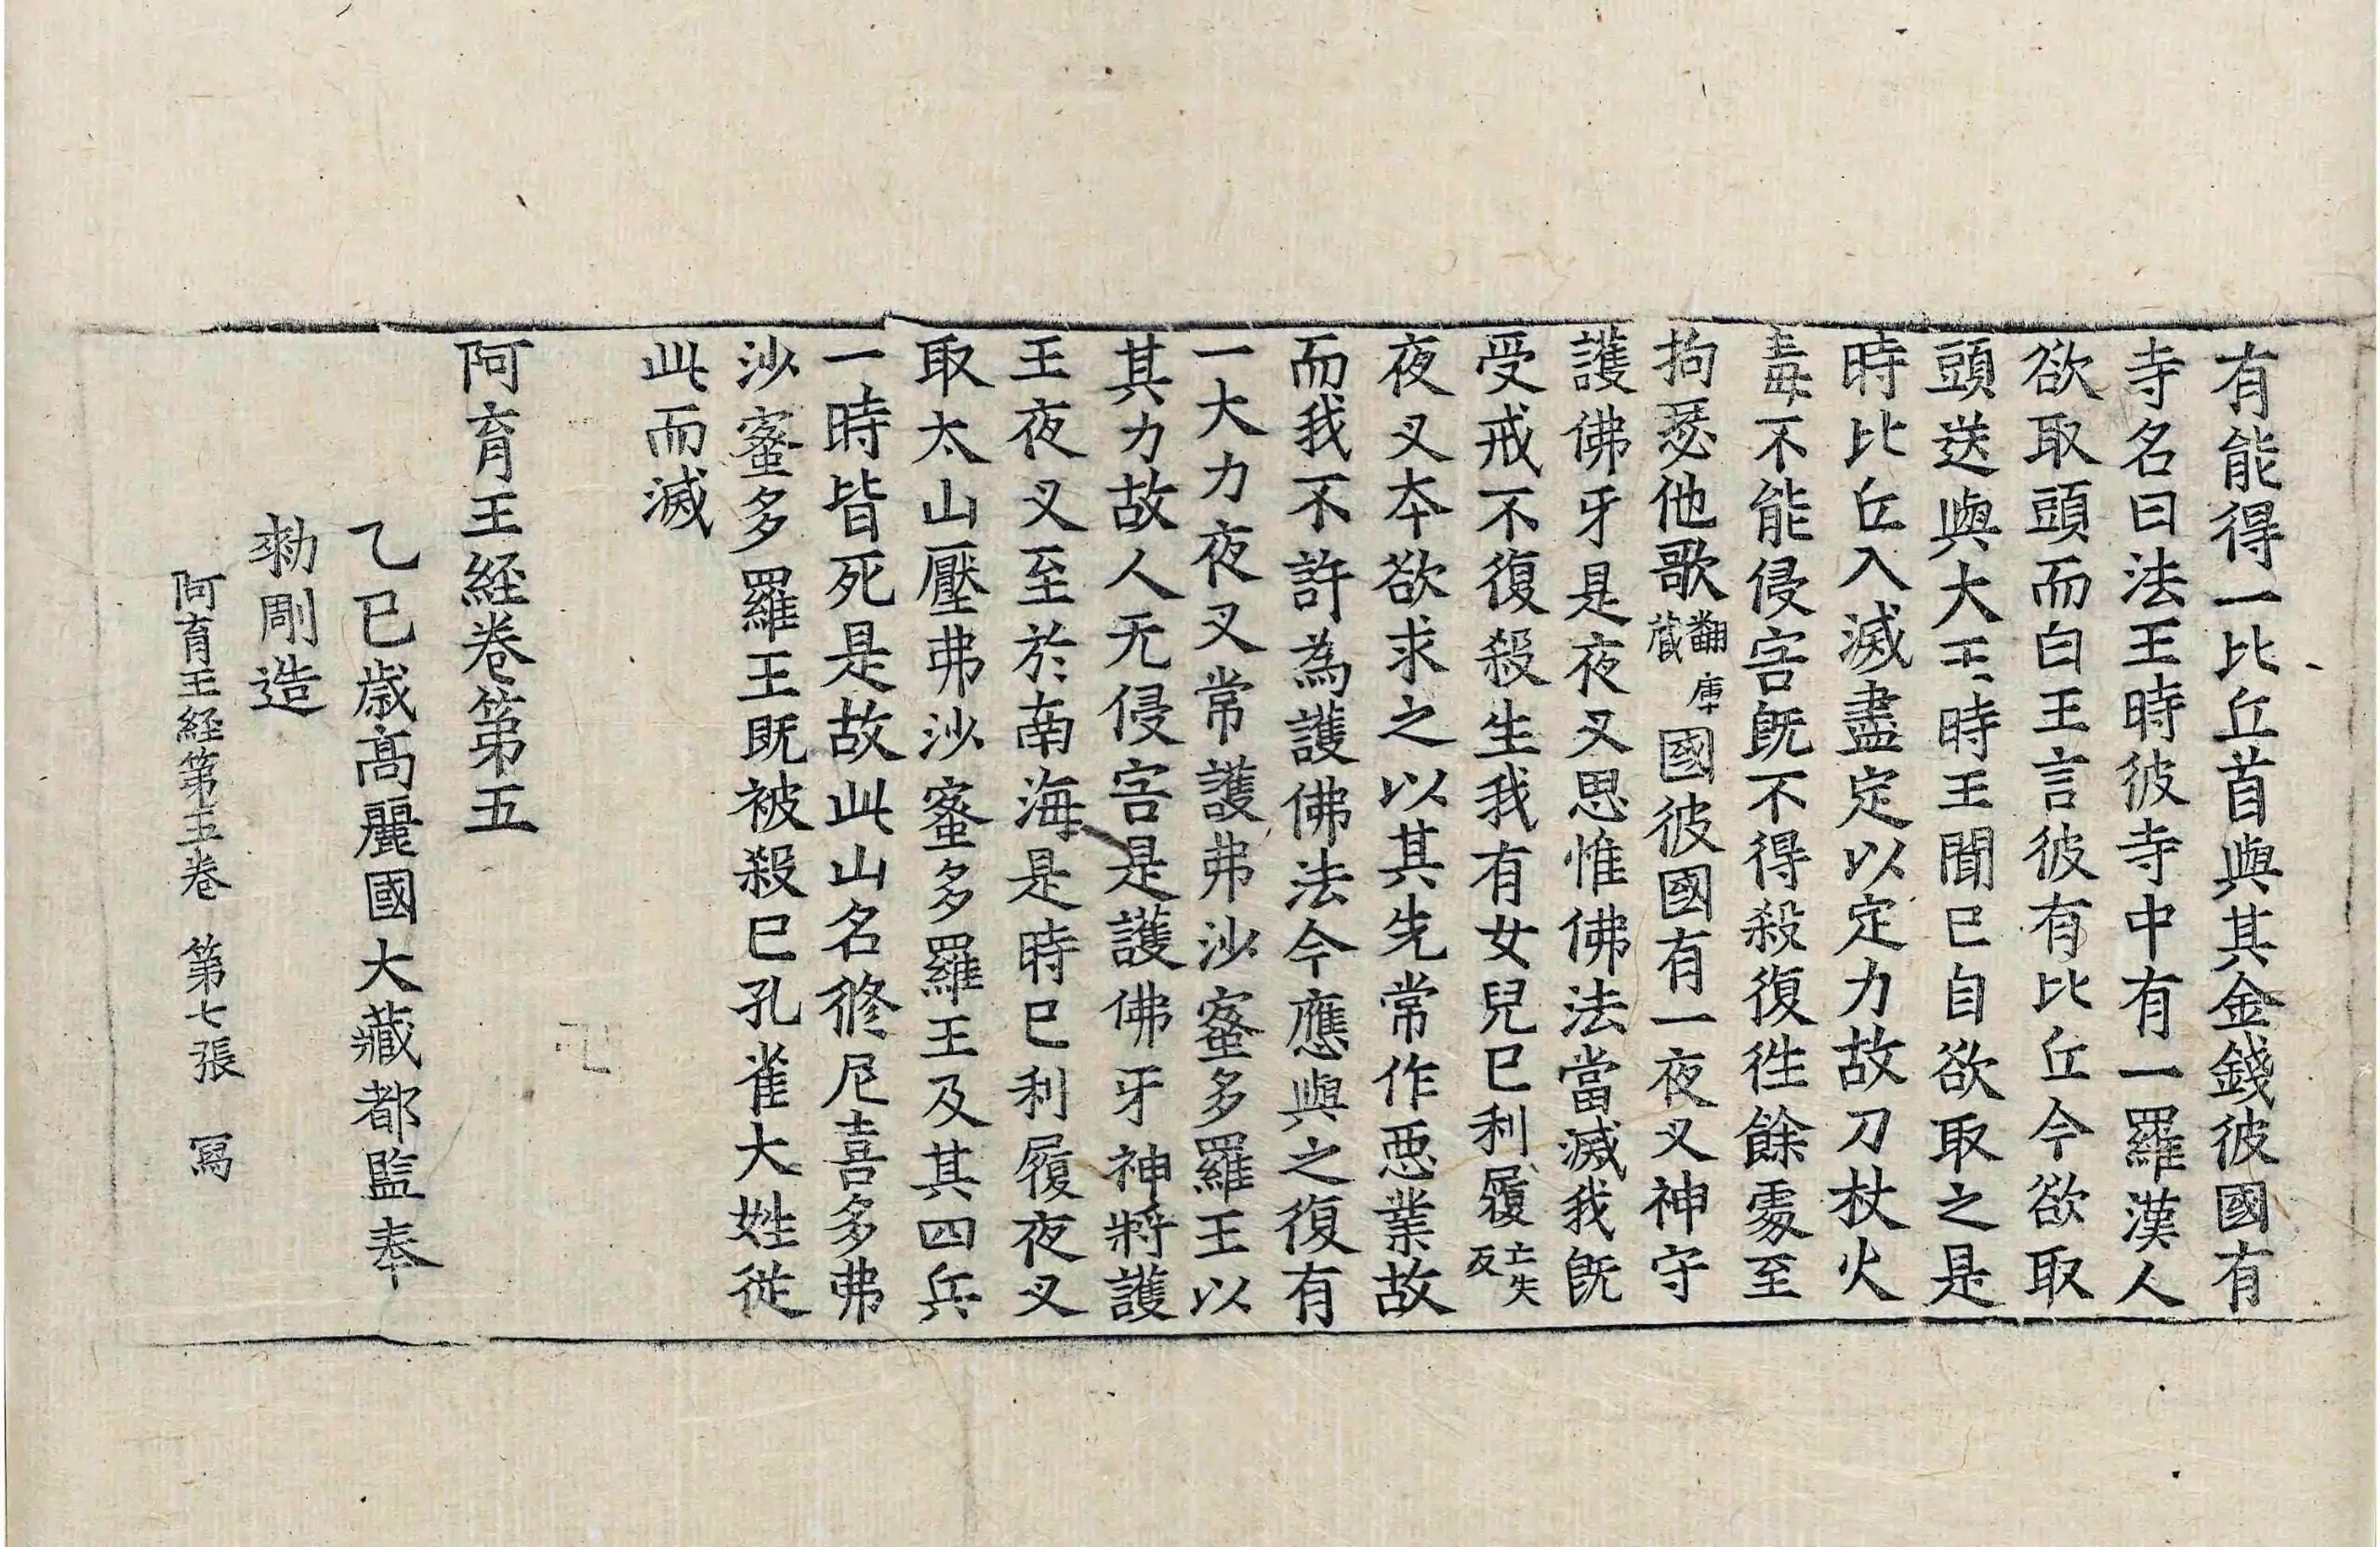 有能得一比丘首與其金錢彼國有
寺名曰法王時彼寺中有一羅漢人
欲取頭而白王言彼有比丘今欲取
頭送與大王時王聞已自欲取之是
時比丘入滅盡定以定力故刀杖火
毒不能侵害既不得殺復往餘處至
拘瑟他歌翻庫藏國彼國有一夜叉神守
護佛牙是夜叉思惟佛法當滅我既
受戒不復殺生我有女兒已利履亡失反
夜叉本欲求之以其先常作惡業故
而我不許為護佛法今應與之復有
一大力夜叉常護弗沙蜜多羅王以
其力故人无侵害是護佛牙神將護
王夜叉至於南海是時已利履夜叉
取太山壓弗沙蜜多羅王及其四兵
一時皆死是故此山名修尼喜多弗
沙蜜多羅王既被殺已孔雀大姓從
此而滅
阿育王経卷第五
乙巳歳高麗國大藏都監奉
勑剛造
阿育王経第五卷 第七張 寫